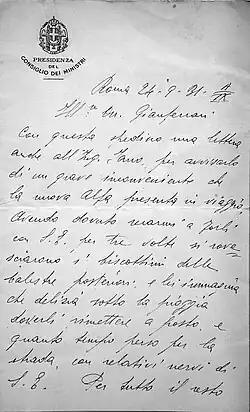 PRESIDENZA
DEL
CONSIGLIO DEI MINISTRI
Roma 24-9-31 IX
Ill. Sr. Gianferrari
Con questa spedisco una lettera
anche all'Ing. Jano, per avvisarlo
di un grave inconveniente che
la nuova Alfa presenta in viaggio
Avendo dovuto recarmi a Forlì
con S.E. per tre volte si rove-
sciarono i biscottini delle
balestre posteriori, e lei s'immagina
che delizia sotto la pioggia
doverli rimettere a posto, e
quanto tempo perso per la
strada, con relativi nervi di
S.E. Per tutto il resto